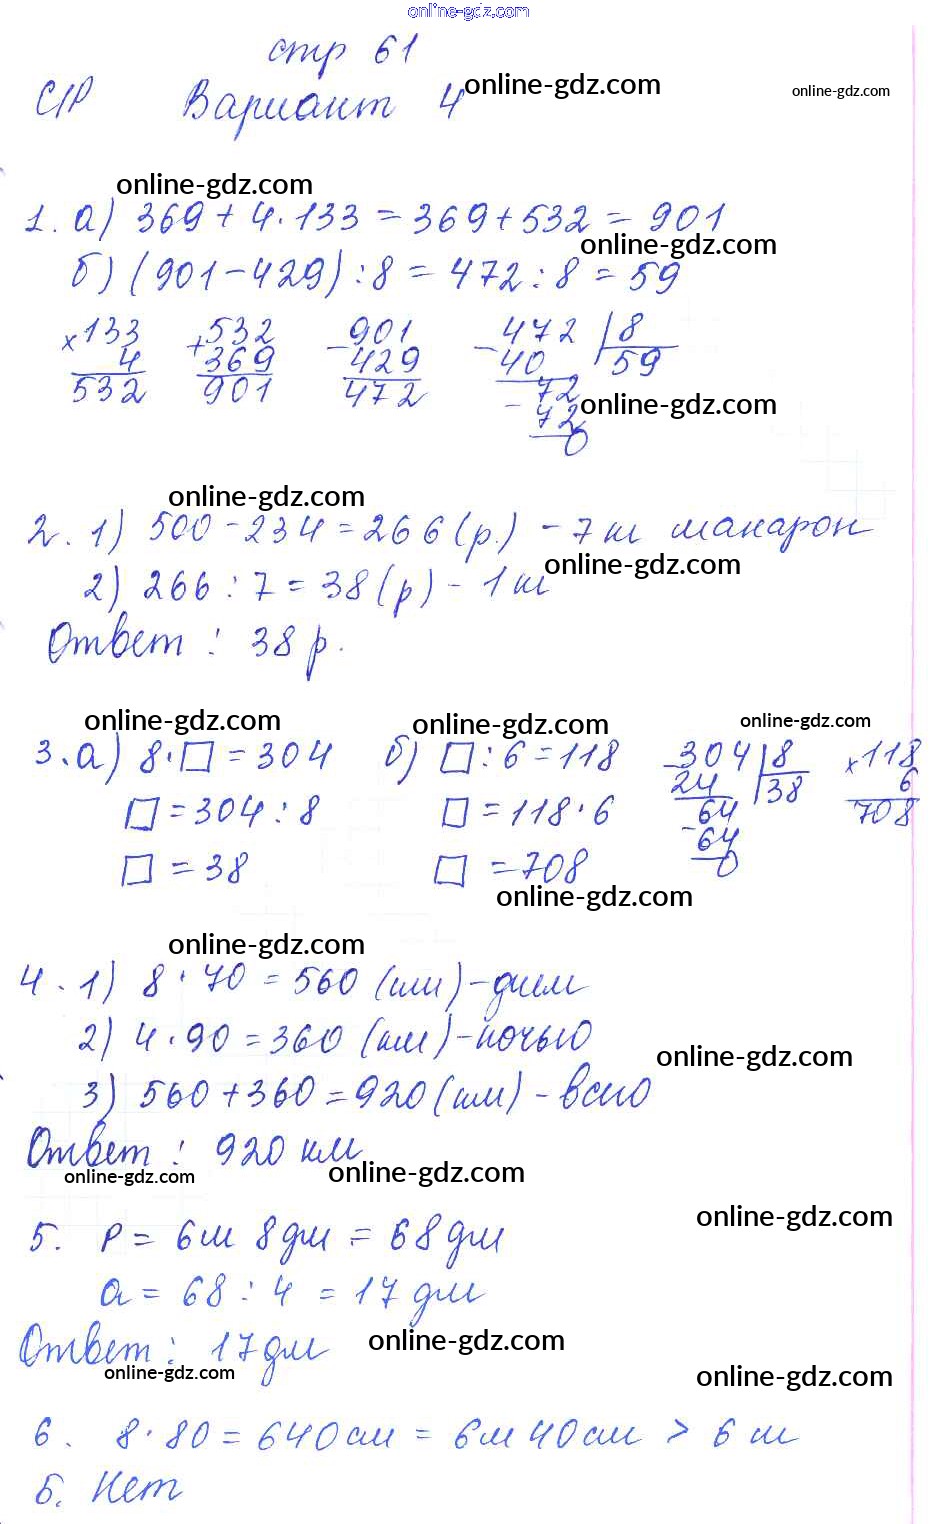 online-gdz.com
стр 61
С/Р Вариант 4 online-gdz.com online-gdz.com
online-gdz.com
1. а) 369 + 4 · 133 = 369 + 532 = 901
online-gdz.com
б) (901 - 429) : 8 = 472 : 8 = 59
× 133 + 532 - 901 - 472 | 8
4 369 429 40 59
532 901 472 72
- 72 online-gdz.com
0
online-gdz.com
2. 1) 500 - 234 = 266 (р.) - 7 п макарон
online-gdz.com
2) 266 : 7 = 38 (р) - 1 п
Ответ : 38 р.
online-gdz.com online-gdz.com online-gdz.com
3. а) 8 · □ = 304 б) □ : 6 = 118 - 304 | 8 × 118
24 38 6
□ = 304 : 8 □ = 118 · 6 64 708
- 64
□ = 38 □ = 708 0
online-gdz.com
online-gdz.com
4. 1) 8 · 70 = 560 (км) - днем
2) 4 · 90 = 360 (км) - ночью
online-gdz.com
3) 560 + 360 = 920 (км) - всего
Ответ : 920 км
online-gdz.com online-gdz.com
online-gdz.com
5. P = 6м 8дм = 68 дм
a = 68 : 4 = 17 дм
Ответ : 17 дм online-gdz.com
online-gdz.com online-gdz.com
6. 8 · 80 = 640 см = 6м 40 см > 6 м
Б. Нет